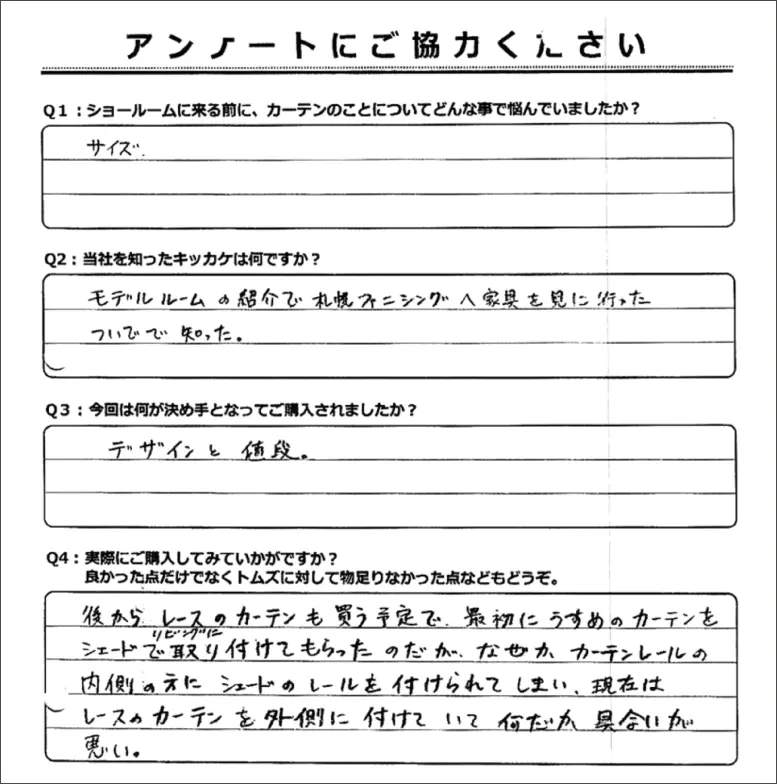 アンケートにご協力ください
Q1：ショールームに来る前に、カーテンのことについてどんな事で悩んでいましたか？
サイズ.
Q2：当社を知ったキッカケは何ですか？
モデルルームの紹介で札幌ファニシングへ家具を見に行った
ついでで知った。
Q3：今回は何が決め手となってご購入されましたか？
デザインと値段。
Q4：実際にご購入してみていかがですか？
良かった点だけでなくトムズに対して物足りなかった点などもどうぞ。
後からレースのカーテンも買う予定で、最初にうすめのカーテンを
リビングに
シェードで取り付けてもらったのだが、なぜかカーテンレールの
内側の方にシェードのレールを付けられてしまい、現在は
レースのカーテンを外側に付けていて何だか具合いが
悪い。